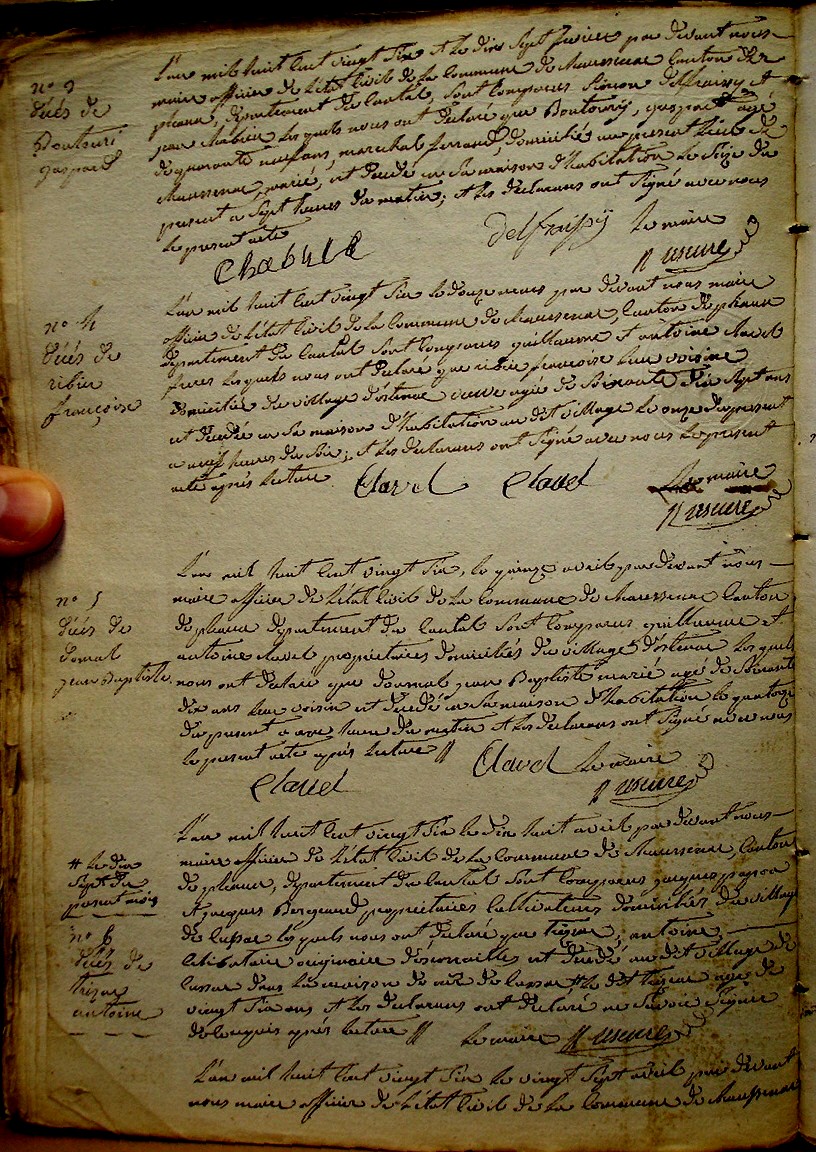 n° 3
décés de
Doutouri
gaspard
L'an mil huit cent vingt six et le dix sept fevrier par devant nous
maire officier de l'état Civil de la Commune de Maussenac Canton de
pleaux, département du Cantal, sont Comparus Simon delfraissy et
jean Chabrie les quels nous ont déclaré que Doutouri, gaspard agé
de quarante neuf ans, marechal ferrand, domicilié au present lieu de
Maussenac, marié, est decedé en sa maison d'habitation le seize du
present a sept heures du matin; et les declarans ont signé avec nous
le present acte
delfraissy le maire
n° 4
décés de
ribier
françoise
L'an mil huit cent vingt six le douze mars par devant nous maire
officier de l'état Civil de la Commune de Maussenac, Canton de pleaux
département du Cantal sont Comparus guillaume et antoine Clavel
freres les quels nous ont declaré que ribier françoise leur voisine
domiciliée du village d'ostenac veuve agée de soixante dix sept ans
est decedée en sa maison d'habitation au dit village le onze du present
a neuf heures du soir; et les declarans ont signé avec nous le present
acte après lecture
Clavel Clavel le maire
n° 5
décés de
Domal
jean Baptiste
L'an mil huit cent vingt six, le quinze avril par devant nous
maire officier de l'état Civil de la commune de Maussenac Canton
de pleaux département du Cantal sont Comparus guillaume et
antoine Clavel proprietaires domiciliés du village d'ostenac les quels
nous ont declaré que Doumal jean Baptiste marié agé de soixante
dix ans leur voisin est decedé en sa maison d'habitation le quatorze
du present a onze heures du matin et les declarans ont signé avec nous
le present acte après lecture
Clavel le maire
Clavel
# le dix
sept du
present mois
n° 6
décés de
antoine
L'an mil huit cent vingt six le dix huit avril par devant nous
maire officier de l'état Civil de la Commune de Maussenac, Canton
de pleaux, département du Cantal sont Comparus jacques
et jacques proprietaires Cultivateurs domiciliés du village
de Cussac les quels nous ont declaré que antoine,
Célibataire originaire d'escorailles est decedé au dit village de
Cussac dans la maison de # le dit agé de
vingt six ans et les declarans ont declaré ne savoir signer
de ce requis après lecture
le maire
L'an mil huit cent vingt six le vingt sept avril par devant
nous maire officier de l'état Civil de la Commune de Maussenac